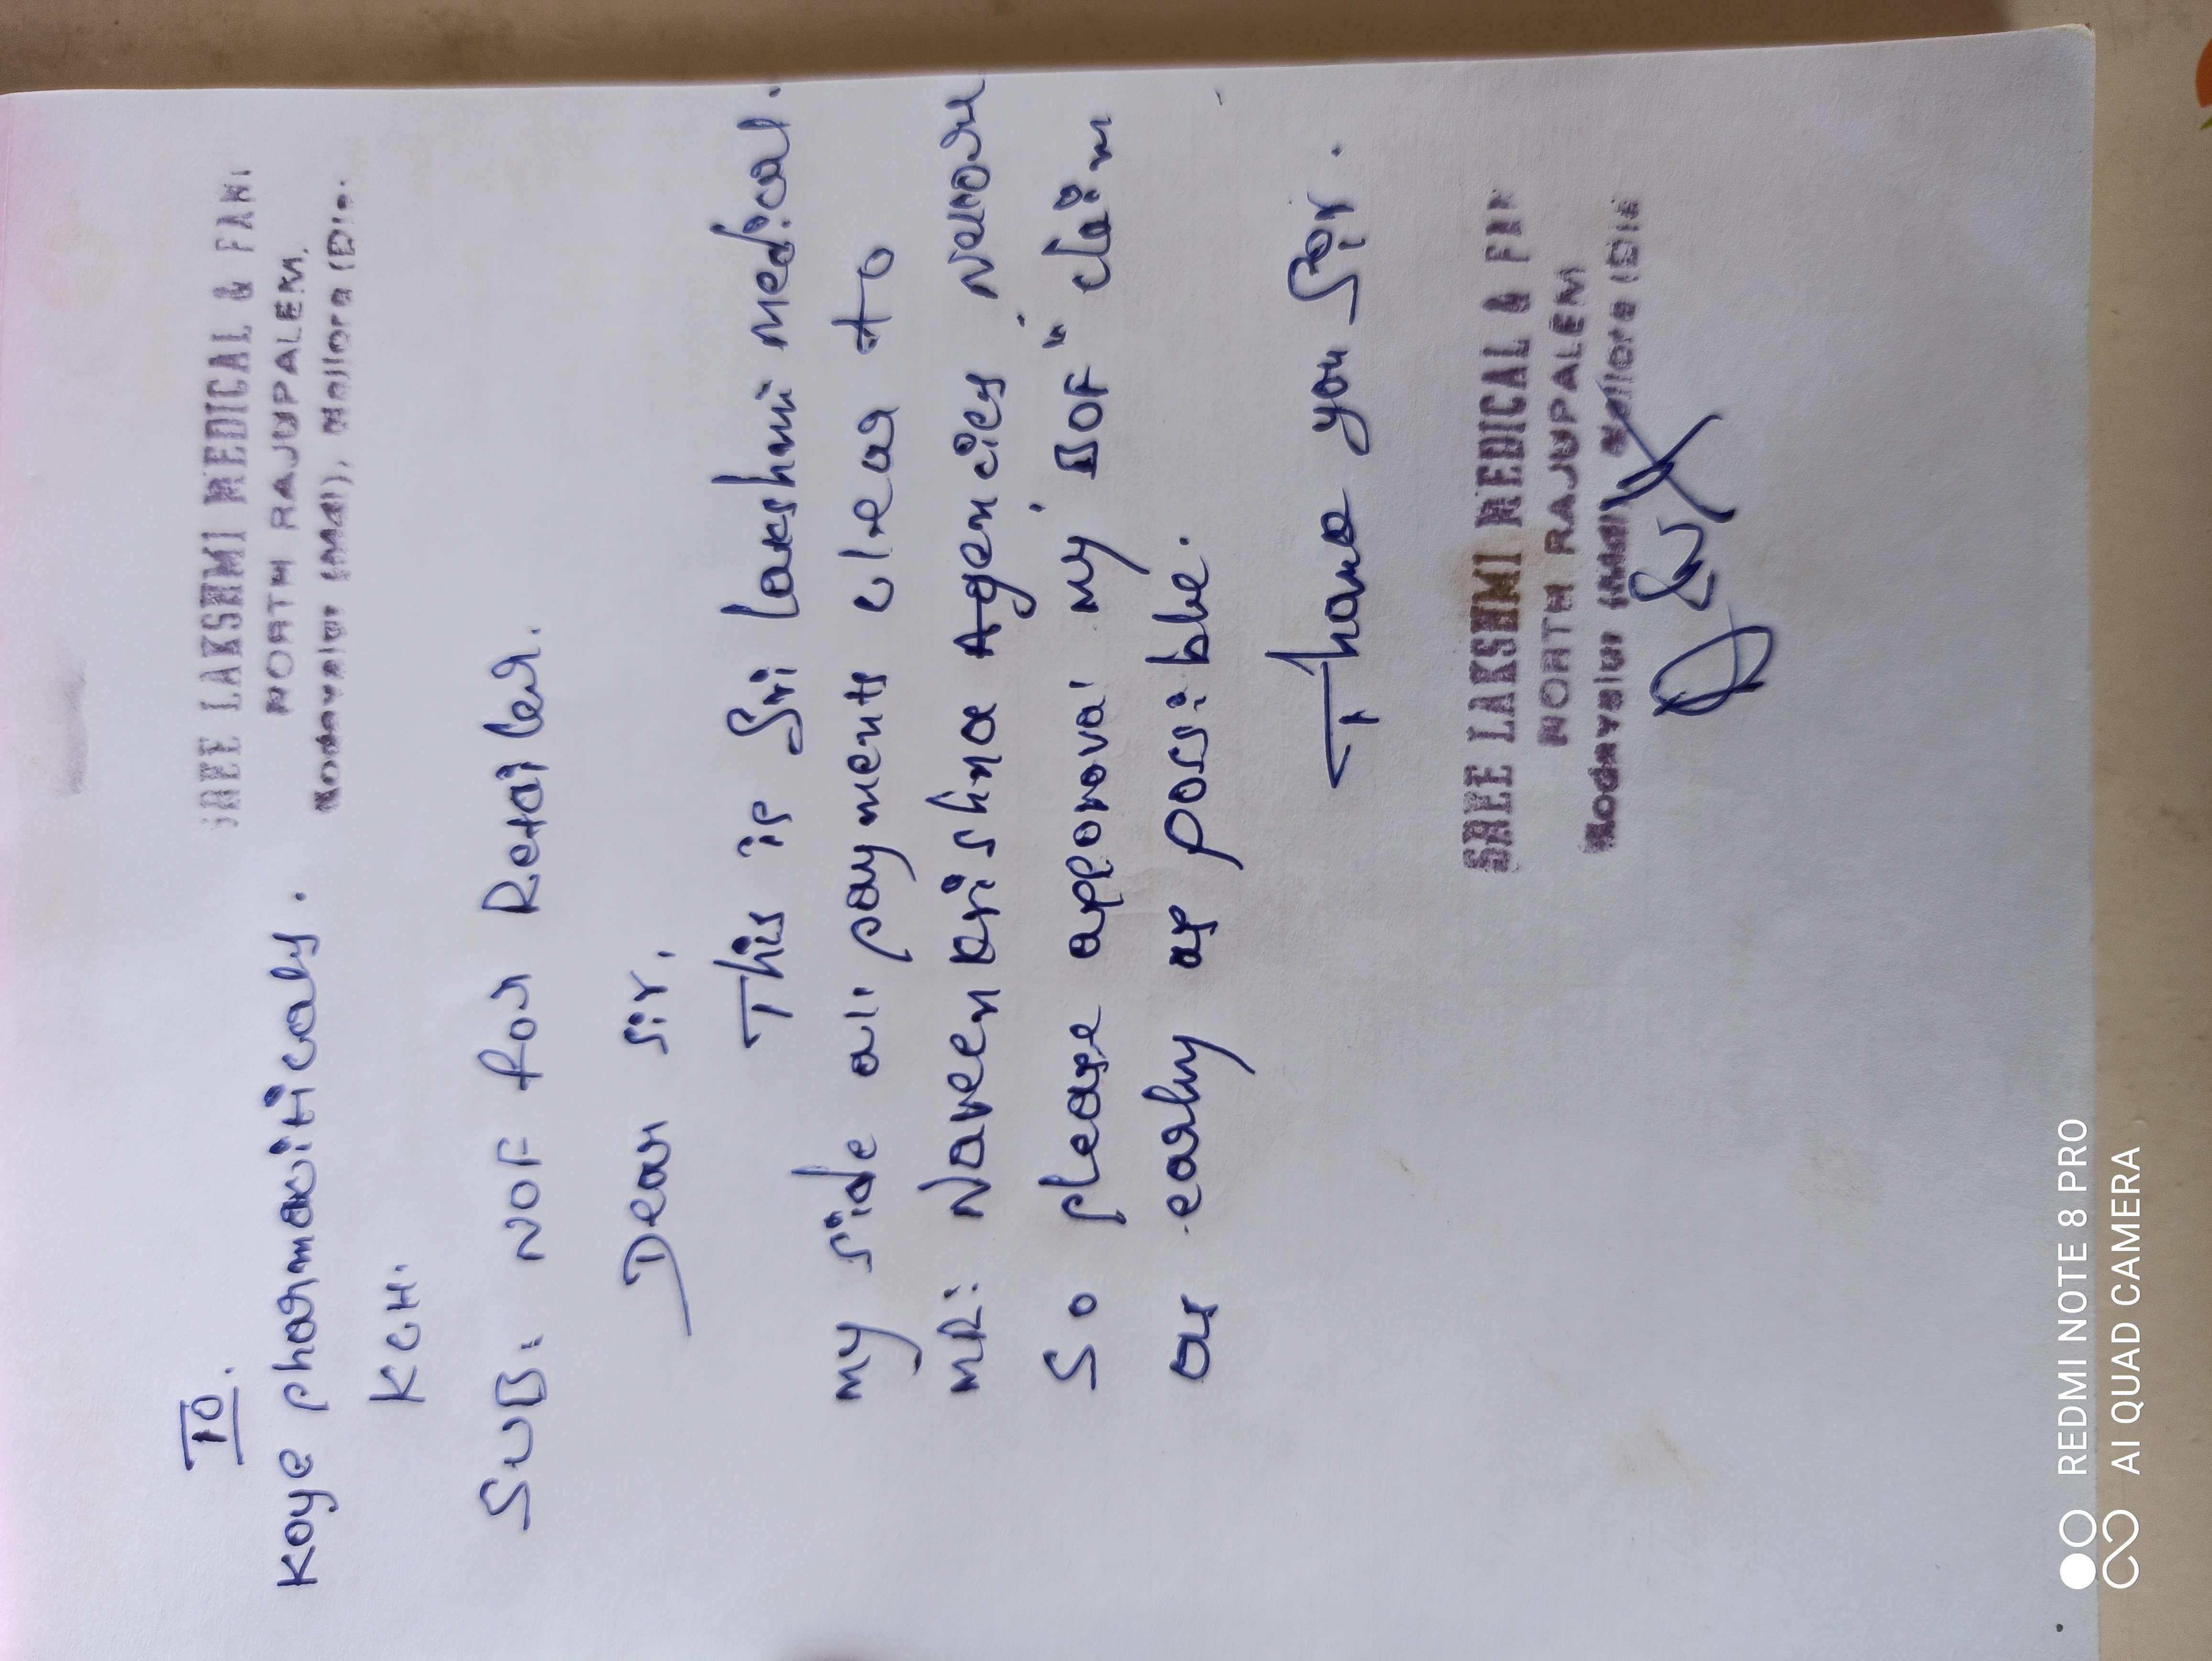 TO.
SREE LAKSHMI MEDICAL & FAN
NORTH RAJUPALEM.
Kodavalur (Mdl), Nellore (Dt).
Koye pharmaciticals.
KCH.
SUB: NOF for Retailer.
Dear sir,
This is Sri lakshmi medical.
my side all payments clear to
MR: Naveen krishna Agencies Nellore
So please approval my "DOF" claim
as early as possible.
Thank you Sir.
SREE LAKSHMI MEDICAL & FAN
NORTH RAJUPALEM
Kodavalur (Mdl) Nellore (Dt)
REDMI NOTE 8 PRO
AI QUAD CAMERA